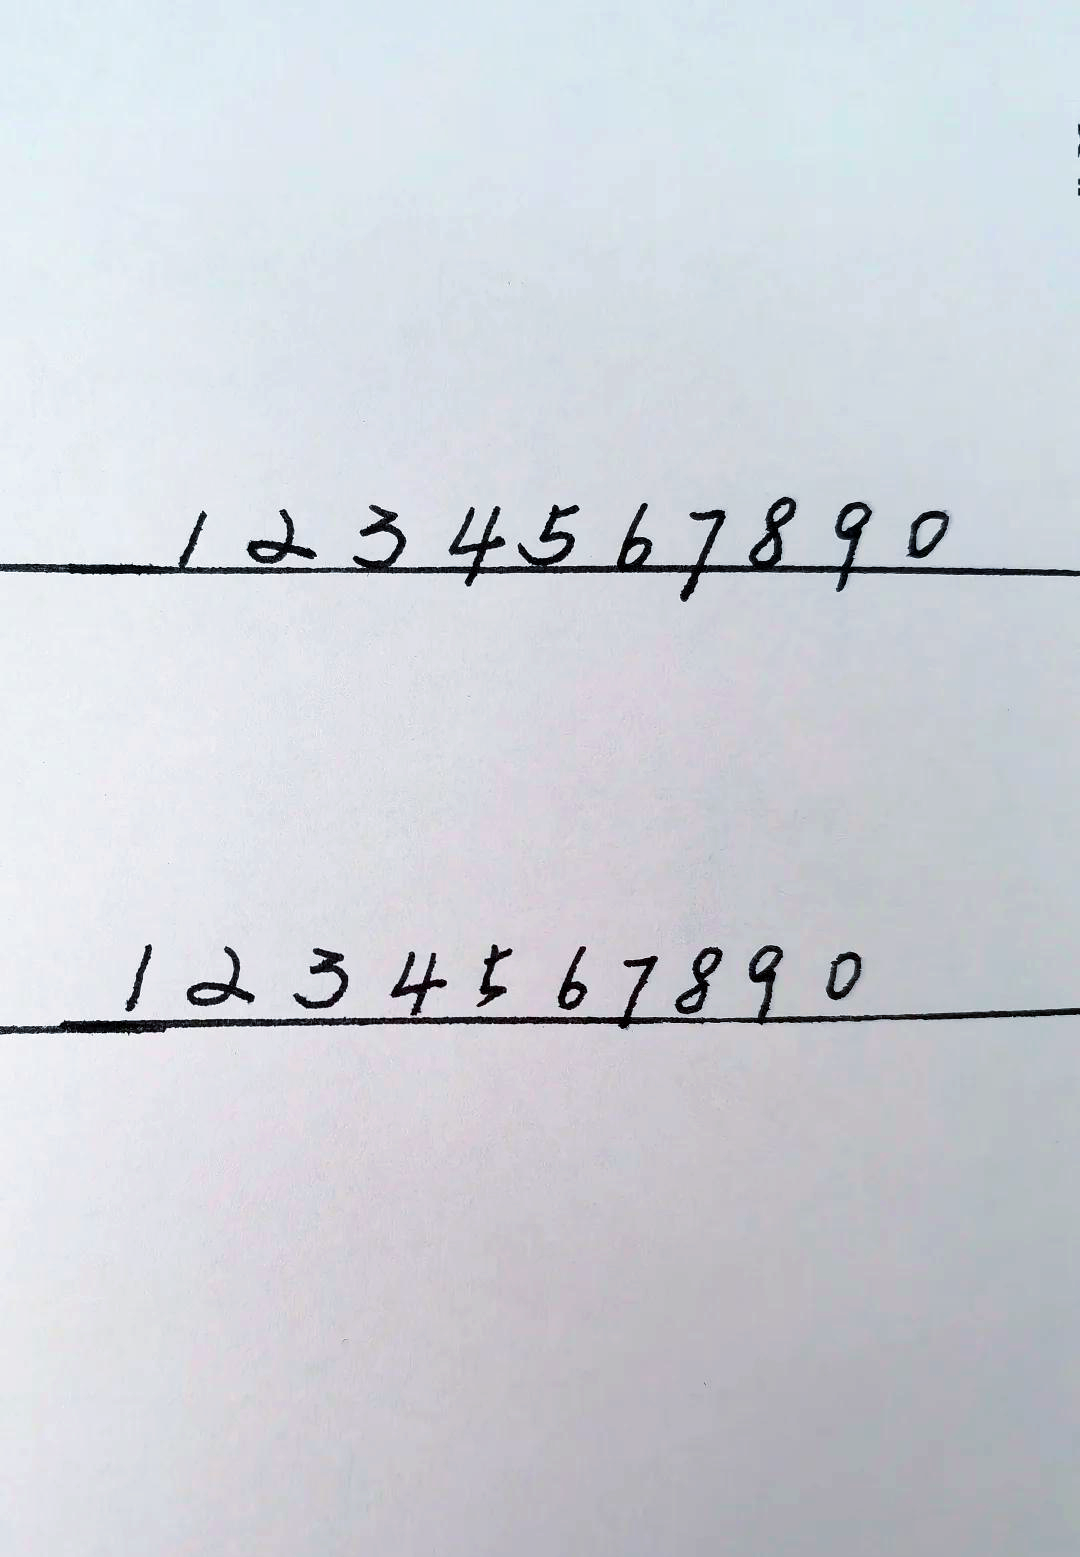 1 2 3 4 5 6 7 8 9 0
1 2 3 4 5 6 7 8 9 0